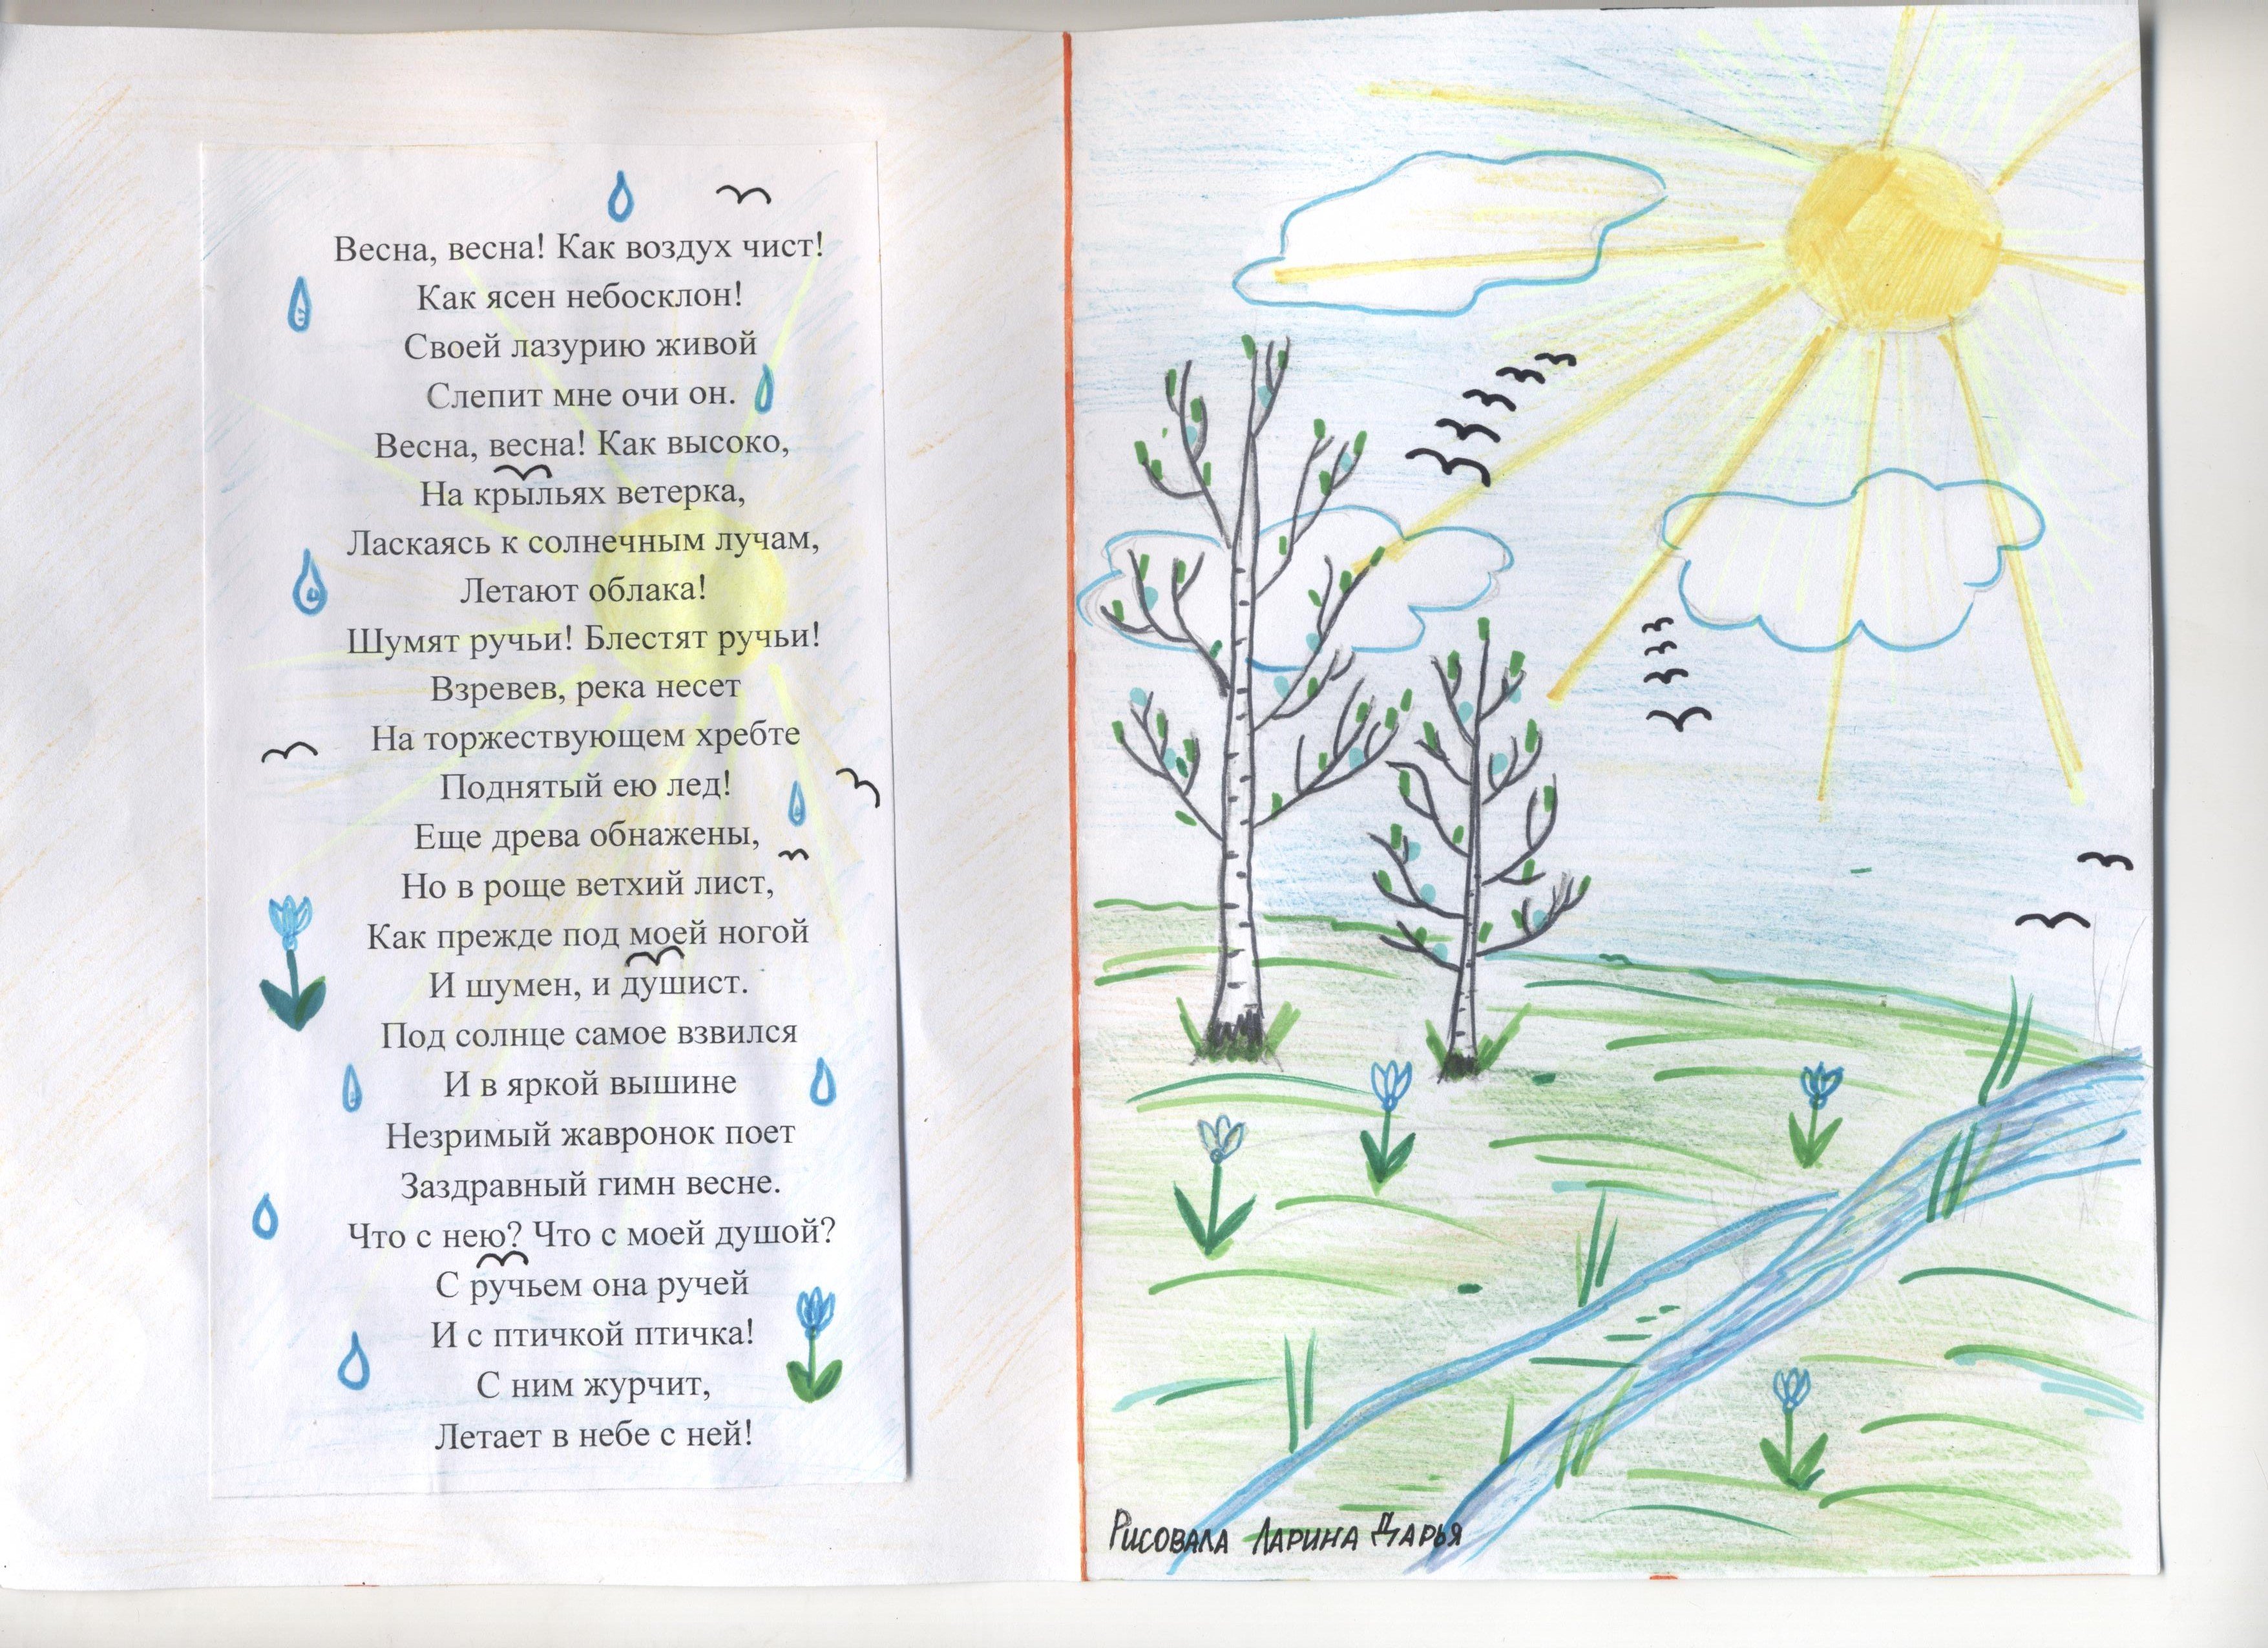 Весна, весна! Как воздух чист!
Как ясен небосклон!
Своей лазурию живой
Слепит мне очи он.
Весна, весна! Как высоко,
На крыльях ветерка,
Ласкаясь к солнечным лучам,
Летают облака!
Шумят ручьи! Блестят ручьи!
Взревев, река несет
На торжествующем хребте
Поднятый ею лед!
Еще древа обнажены,
Но в роще ветхий лист,
Как прежде под моей ногой
И шумен, и душист.
Под солнце самое взвился
И в яркой вышине
Незримый жавронок поет
Заздравный гимн весне.
Что с нею? Что с моей душой?
С ручьем она ручей
И с птичкой птичка!
С ним журчит,
Летает в небе с ней!
Рисовала Ларина Дарья